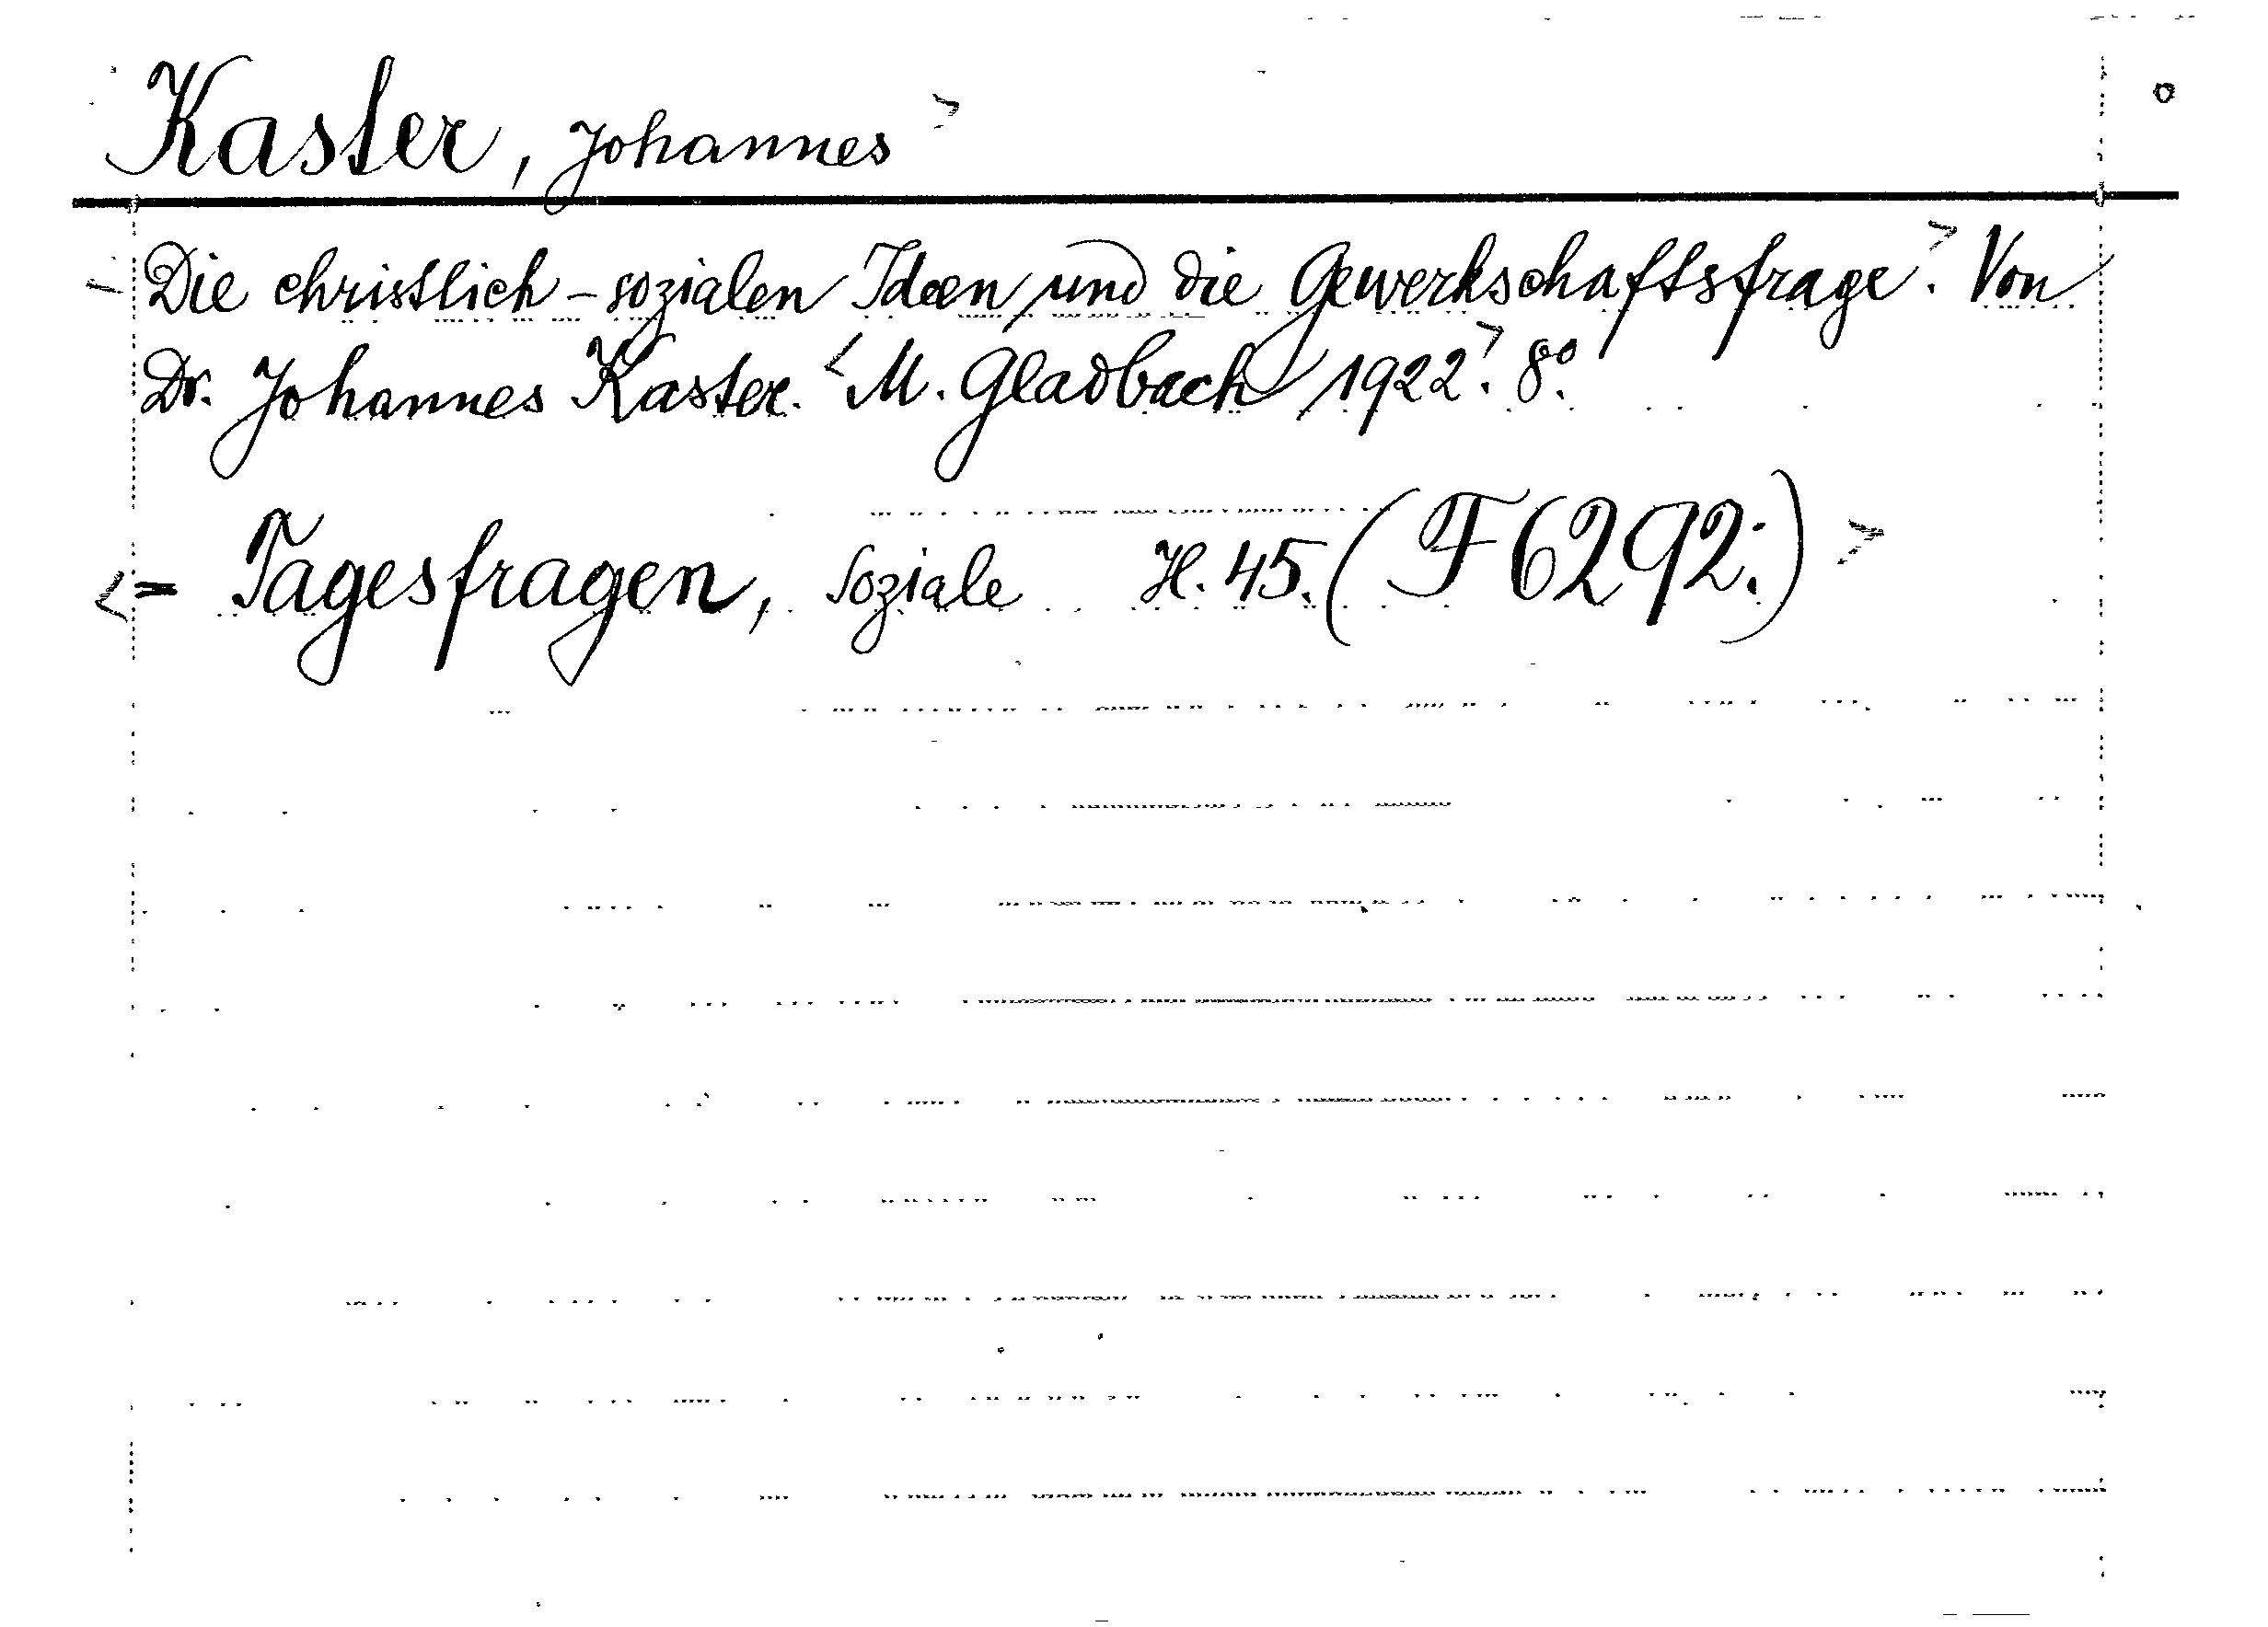 Kaster, Johannes >
Die christlich-sozialen Ideen und die Gewerkschaftsfrage>. Von
Dr. Johannes Kaster. <M. Gladbach 1922>. 8°.
<= Tagesfragen, Soziale H. 45. (F 6292.) >